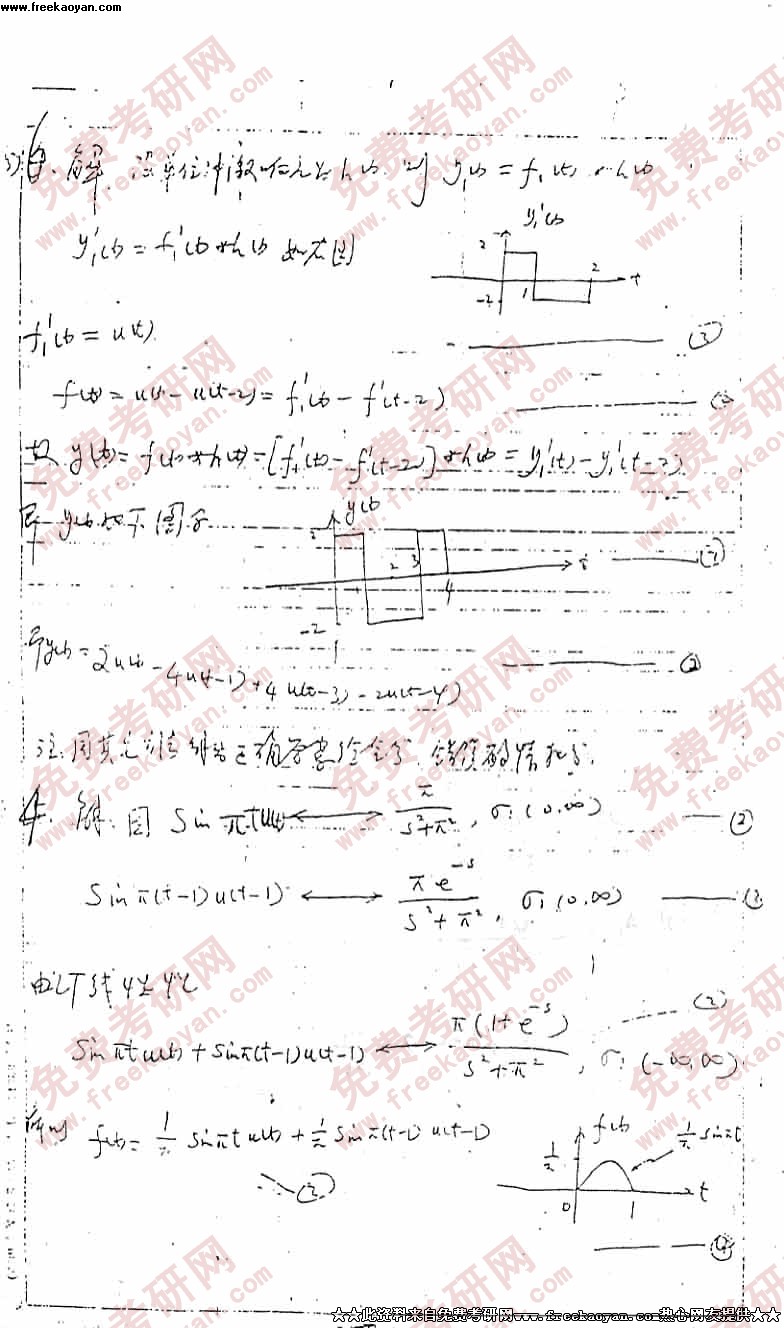 www.freekaoyan.com
解: 设单位冲激响应为 h(t), 则 y₁(t) = f₁(t) * h(t)
y₁'(t) = f₁'(t) * h(t) 如右图
y₁'(t)
2
-2
1
2
t
f₁'(t) = u(t)
③
f(t) = u(t) - u(t-2) = f₁'(t) - f₁'(t-2)
故 y(t) = f(t) * h(t) = [f₁'(t) - f₁'(t-2)] * h(t) = y₁'(t) - y₁'(t-2)
即 y(t) 如下图
y(t)
2
3
4
t
-2
1
即 y(t) = 2u(t) - 4u(t-1) + 4u(t-3) - 2u(t-4)
②
注: 用其它方法
4. 解: 因 Sin πt u(t) ⟷ π / (s²+π²), σ: (0, ∞)
②
Sin π(t-1)u(t-1) ⟷ πe^{-s} / (s²+π²), σ: (0, ∞)
由LT线性性
②
Sin πt u(t) + Sin π(t-1)u(t-1) ⟷ π(1+e^{-s}) / (s²+π²), σ: (-∞, ∞)
所以 f(t) = 1/π Sin πt u(t) + 1/π Sin π(t-1) u(t-1)
②
f(t)
1/π
1/π sin πt
0
1
t
④
★★此资料来自免费考研网www.freekaoyan.com热心网友提供★★